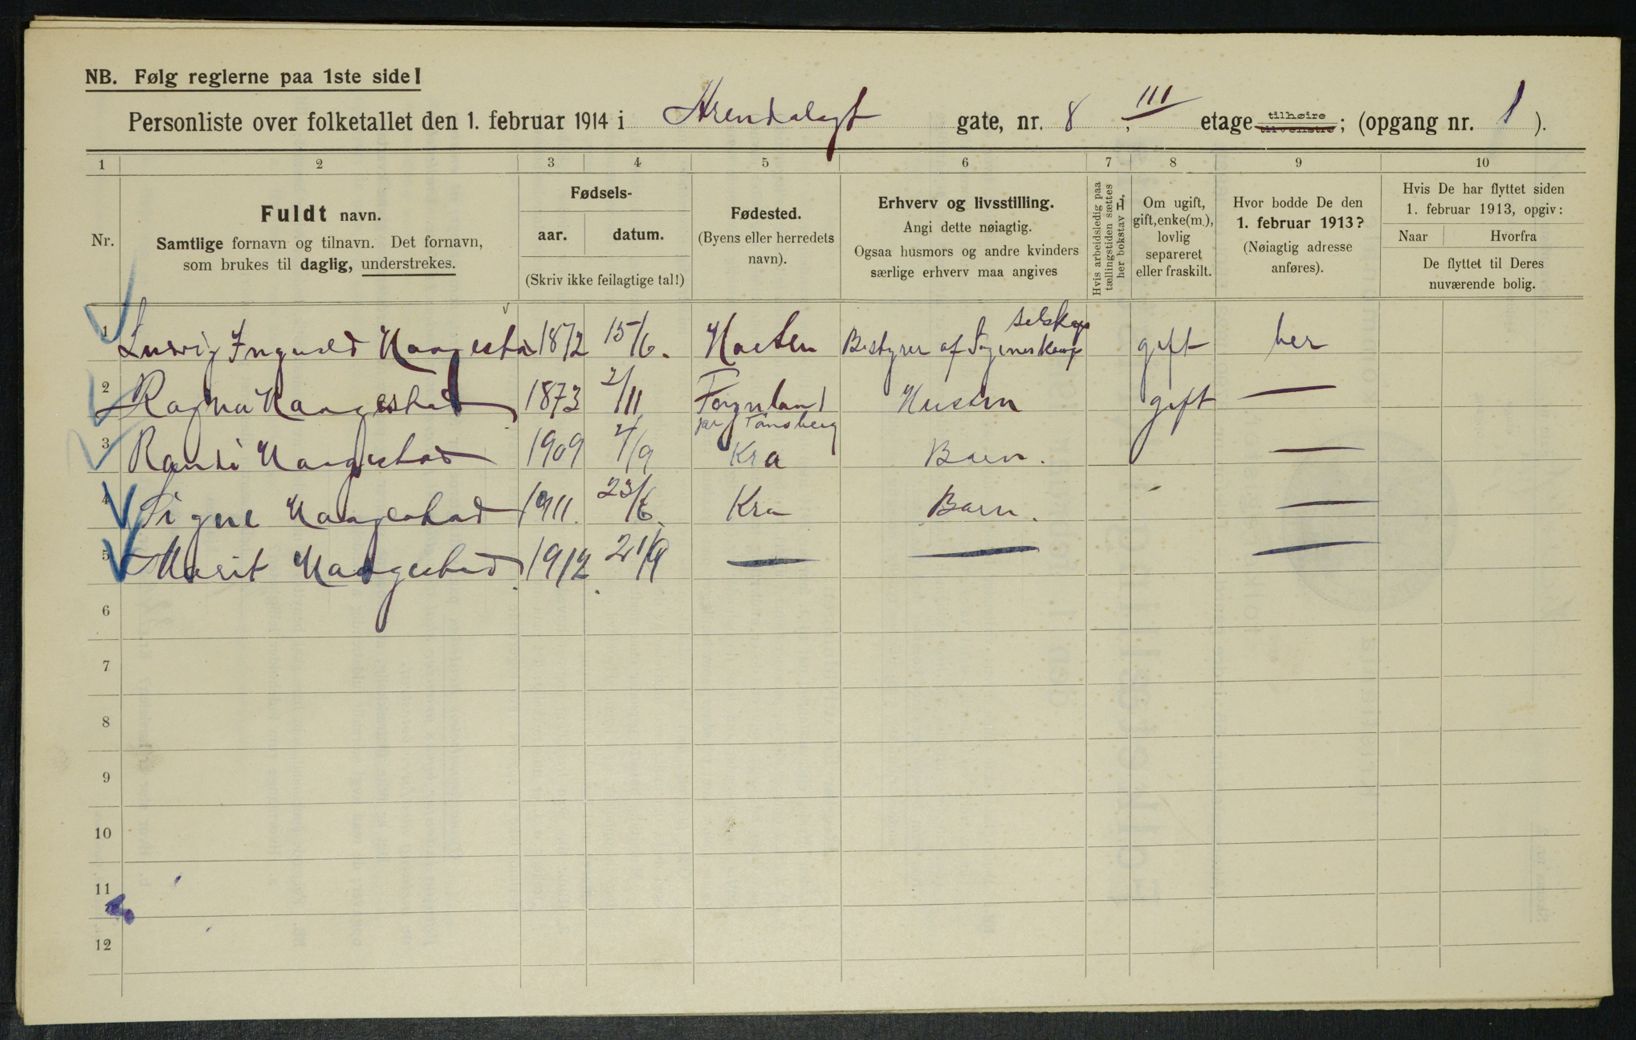 NB. Følg reglerne paa 1ste side!
Personliste over folketallet den 1. februar 1914 i Arendalsgt gate, nr. 8, III etage tilhøire tilvenstre; (opgang nr. 1).
1 2 3 4 5 6 7 8 9 10
Nr.
Fuldt navn.
Samtlige fornavn og tilnavn. Det fornavn,
som brukes til daglig, understrekes.
Fødsels-
aar. datum.
(Skriv ikke feilagtige tal!)
Fødested.
(Byens eller herredets
navn).
Erhverv og livsstilling.
Angi dette nøiagtig.
Ogsaa husmors og andre kvinders
særlige erhverv maa angives
Hvis arbeidsledig paa
tællingstiden sættes
her bokstav L.
Om ugift,
gift, enke(m.),
lovlig
separeret
eller fraskilt.
Hvor bodde De den
1. februar 1913?
(Nøiagtig adresse
anføres).
Hvis De har flyttet siden
1. februar 1913, opgiv:
Naar Hvorfra
De flyttet til Deres
nuværende bolig.
selskap
1 Ludvig Ingvald Haagestad 1872 15/6. Bestyrer af gift her
2 Ragna Haagestad 1873 2/11 Føynland Hustru gift —
pr Tønsberg
3 Randi Haagestad 1909 Kra Barn. —
4 Signe Haagestad 1911. 23/6. Kra Barn. —
5 Marit Haagestad 1912. 21/9 — — —
6
7
8
9
10
11
12